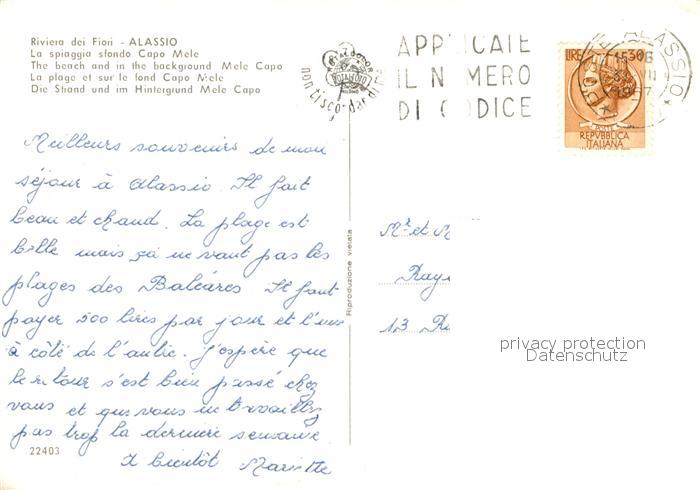 Riviera dei Fiori - ALASSIO
La spiaggia sfondo Capo Mele
The beach and in the background Mele Capo
La plage et sur le fond Capo Mele
Die Strand und im Hintergrund Mele Capo
APPLICATE
IL NUMERO
DI CODICE
LIRE 30
REPVBBLICA
ITALIANA
ALASSIO
Meilleurs souvenirs de mon
séjour à Alassio. Il fait
beau et chaud. La plage est
belle mais ça ne vaut pas les
plages des Baléares Il faut
payer 500 lires par jour et l'un
à côté de l'autre. J'espère que
le retour s'est bien passé chez
vous et que vous ne travaillez
pas trop la dernière semaine
A bientôt Mariette
22403
Riproduzione vietata
Mr et M
Ray
13 R
privacy protection
Datenschutz